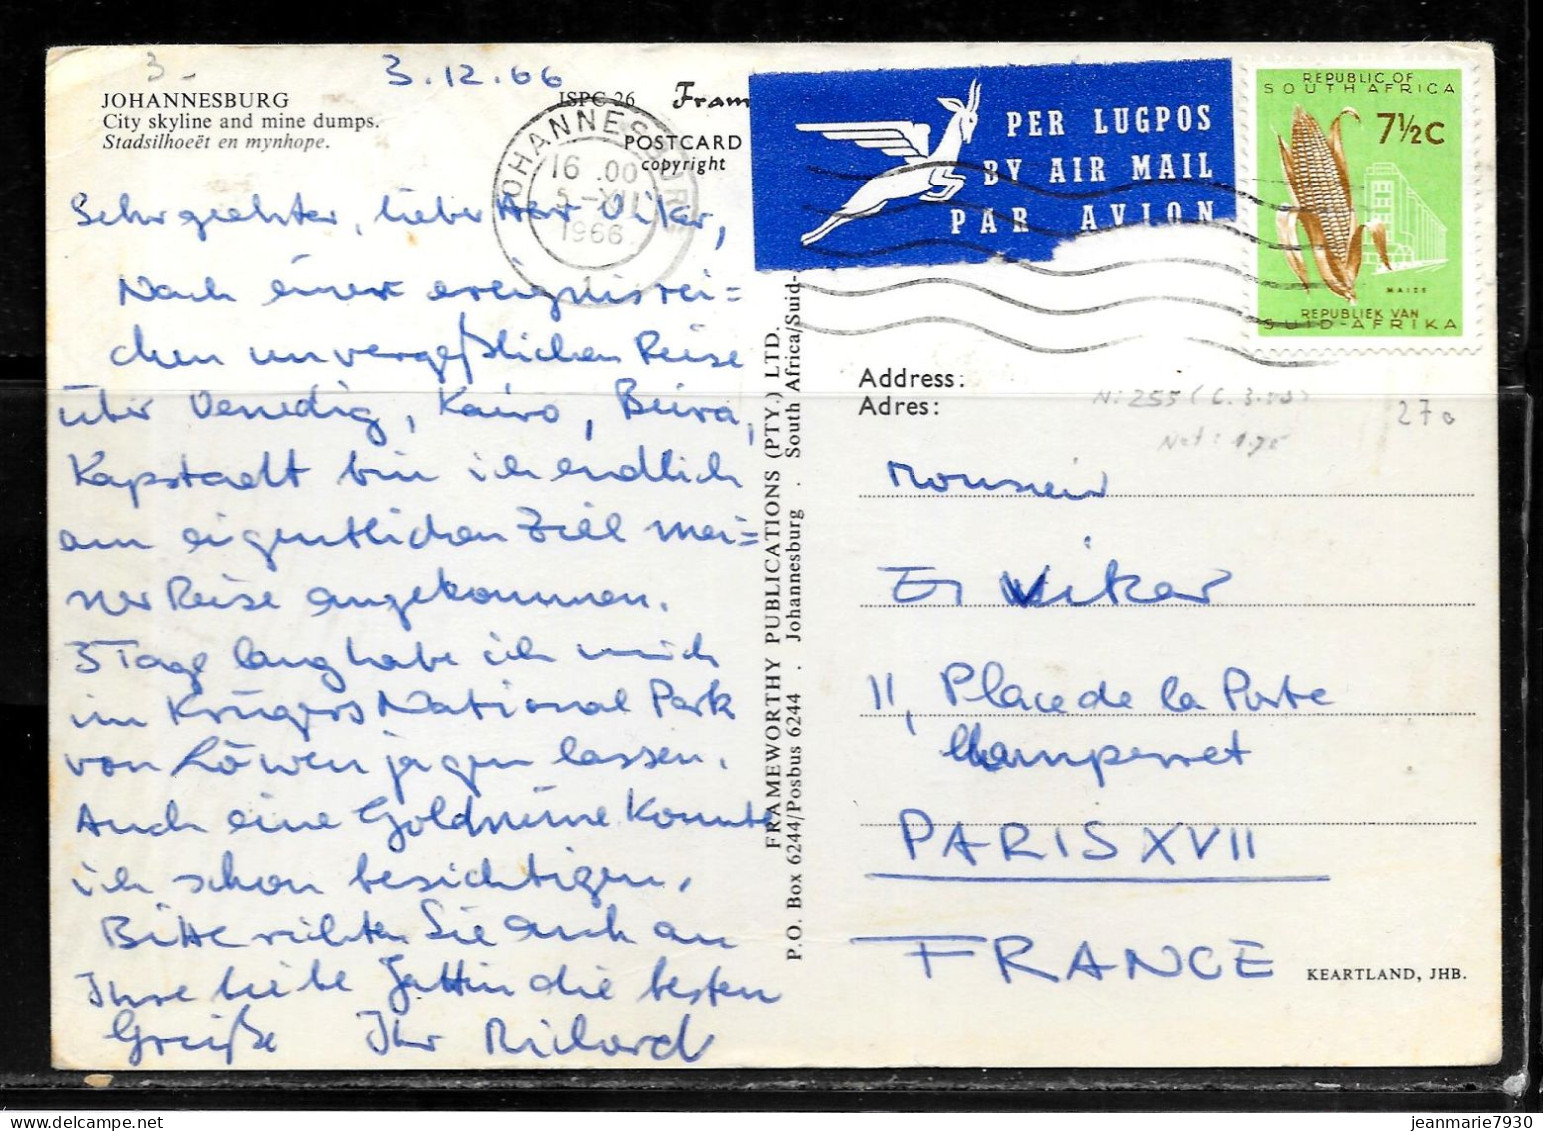 3-
3.12.66
JOHANNESBURG
City skyline and mine dumps.
Stadsilhoeët en mynhope.
ISPC 26
Fram
POSTCARD
copyright
JOHANNESBURG
16 .00
5-XII
1966
PER LUGPOS
BY AIR MAIL
PAR AVION
REPUBLIC OF
SOUTH AFRICA
7½c
MAIZE
REPUBLIEK VAN
SUID-AFRIKA
Sehr geehrter, lieber Herr Vikar,
Nach einer ereignisrei=
chen unvergeßlichen Reise
über Venedig, Kairo, Beira,
Kapstadt bin ich endlich
am eigentlichen Ziel mei=
ner Reise angekommen.
3 Tage lang habe ich mich
im Krügers National Park
von Löwen jagen lassen.
Auch eine Goldmine konnte
ich schon besichtigen.
Bitte richten Sie auch an
Ihre liebe Gattin die besten
Grüße Ihr Richard
FRAMEWORTHY PUBLICATIONS (PTY.) LTD.
P.O. Box 6244/Posbus 6244 . Johannesburg . South Africa/Suid-
Address:
Adres:
N: 255 (C. 3.00)
Net: 1.75
270
Monsieur
Vikar
11, Place de la Porte
Champerret
PARIS XVII
FRANCE
KEARTLAND, JHB.
jeanmarie7930